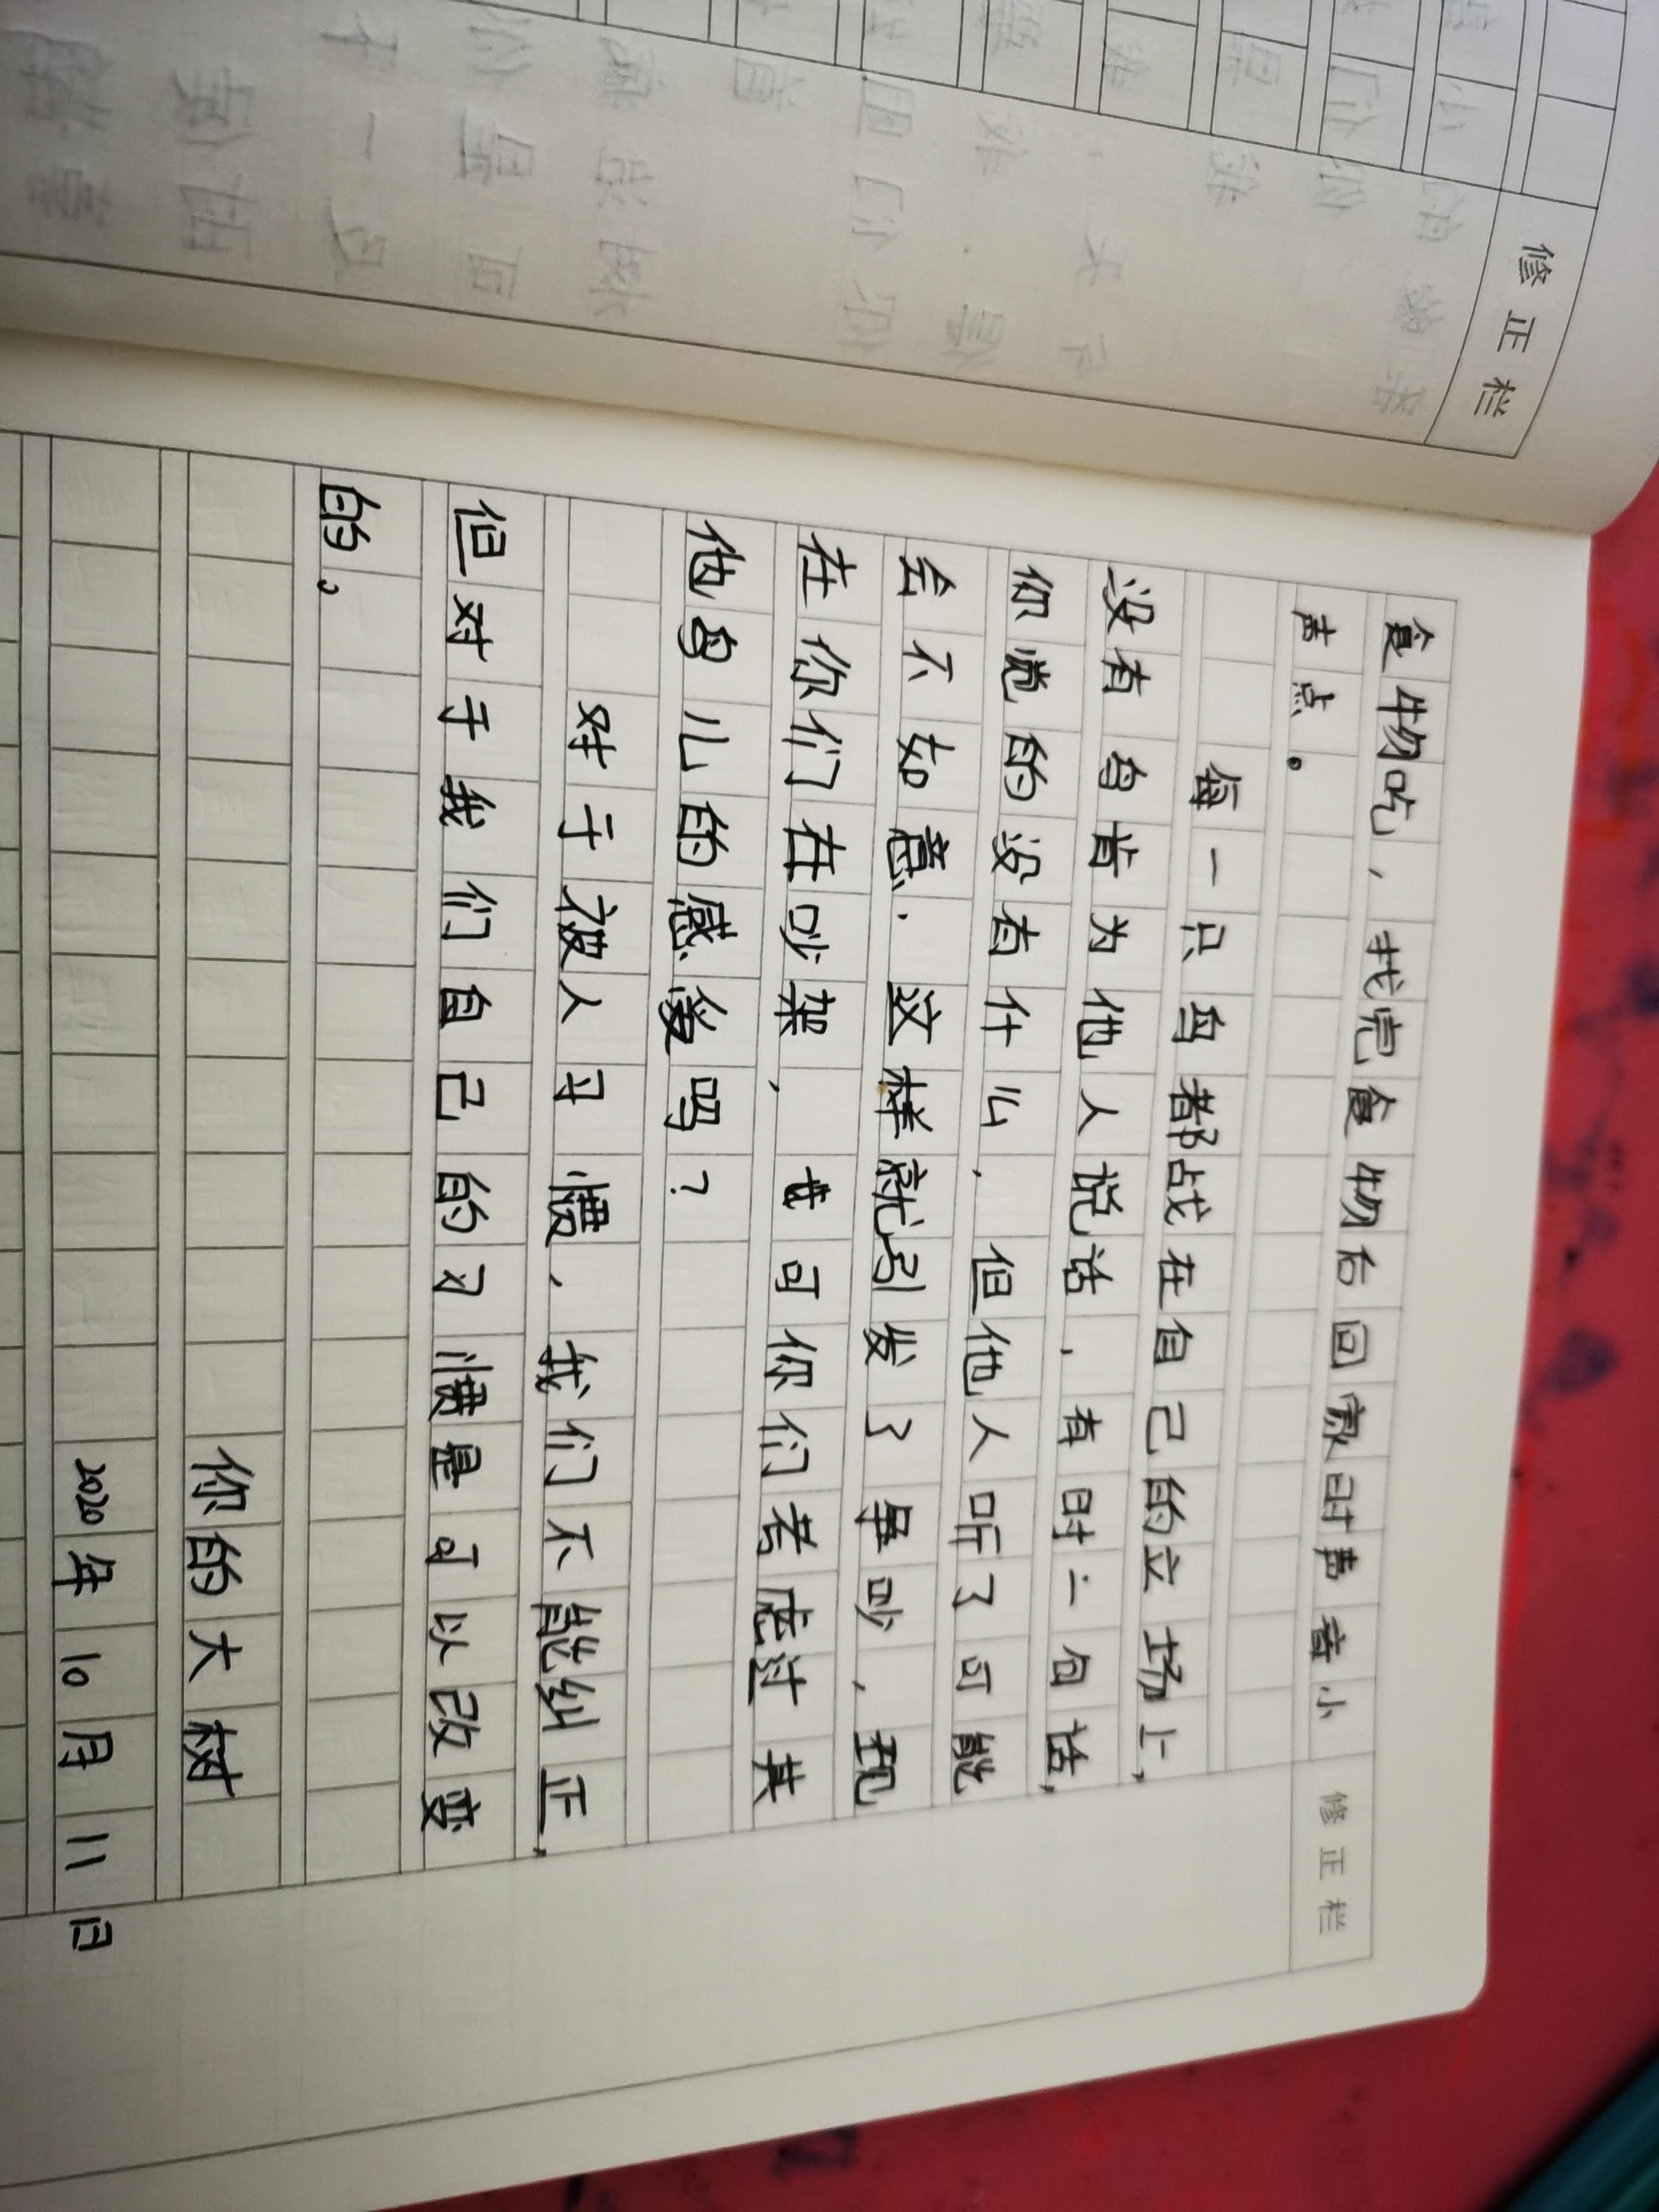 修正栏
修正栏
食物吃，找完食物后回家时声音小
声点。
每一只鸟都战在自己的立场上，
没有鸟肯为他人说话，有时二句话，
你觉的没有什么，但他人听了可能
会不如意．这样就引发了争吵，现
在你们在吵架，可你们考虑过其
他鸟儿的感爱吗？
对于被人习惯，我们不能纠正，
但对于我们自己的习惯是可以改变
的。
你的大树
2020年10月11日